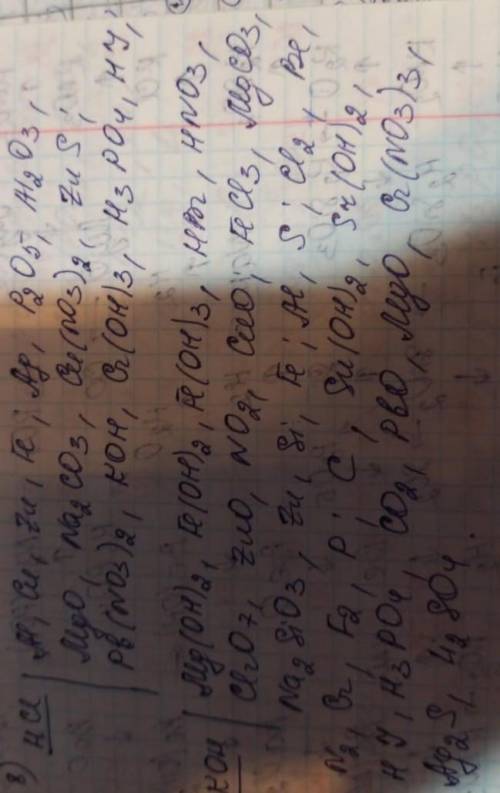 8) HCl | Al, Cu, Zn, Fe, Ag, P2O5, Al2O3,
MgO, Na2CO3, Cu(NO3)2, ZnS,
Pb(NO3)2, KOH, Cr(OH)3, H3PO4, HJ,
KOH | Mg(OH)2, Fe(OH)2, Fe(OH)3, HBr, HNO3,
Cl2O7, ZnO, NO2, CuO, FeCl3, MgCO3,
Na2SiO3, Zn, Si, Fe, Al, S, Cl2, Be,
N2, Cr, F2, P, C, Sn(OH)2, Sr(OH)2,
HJ, H3PO4, CO2, PbO, MgO, Cr(NO3)3,
Ag2S, H2SO4.